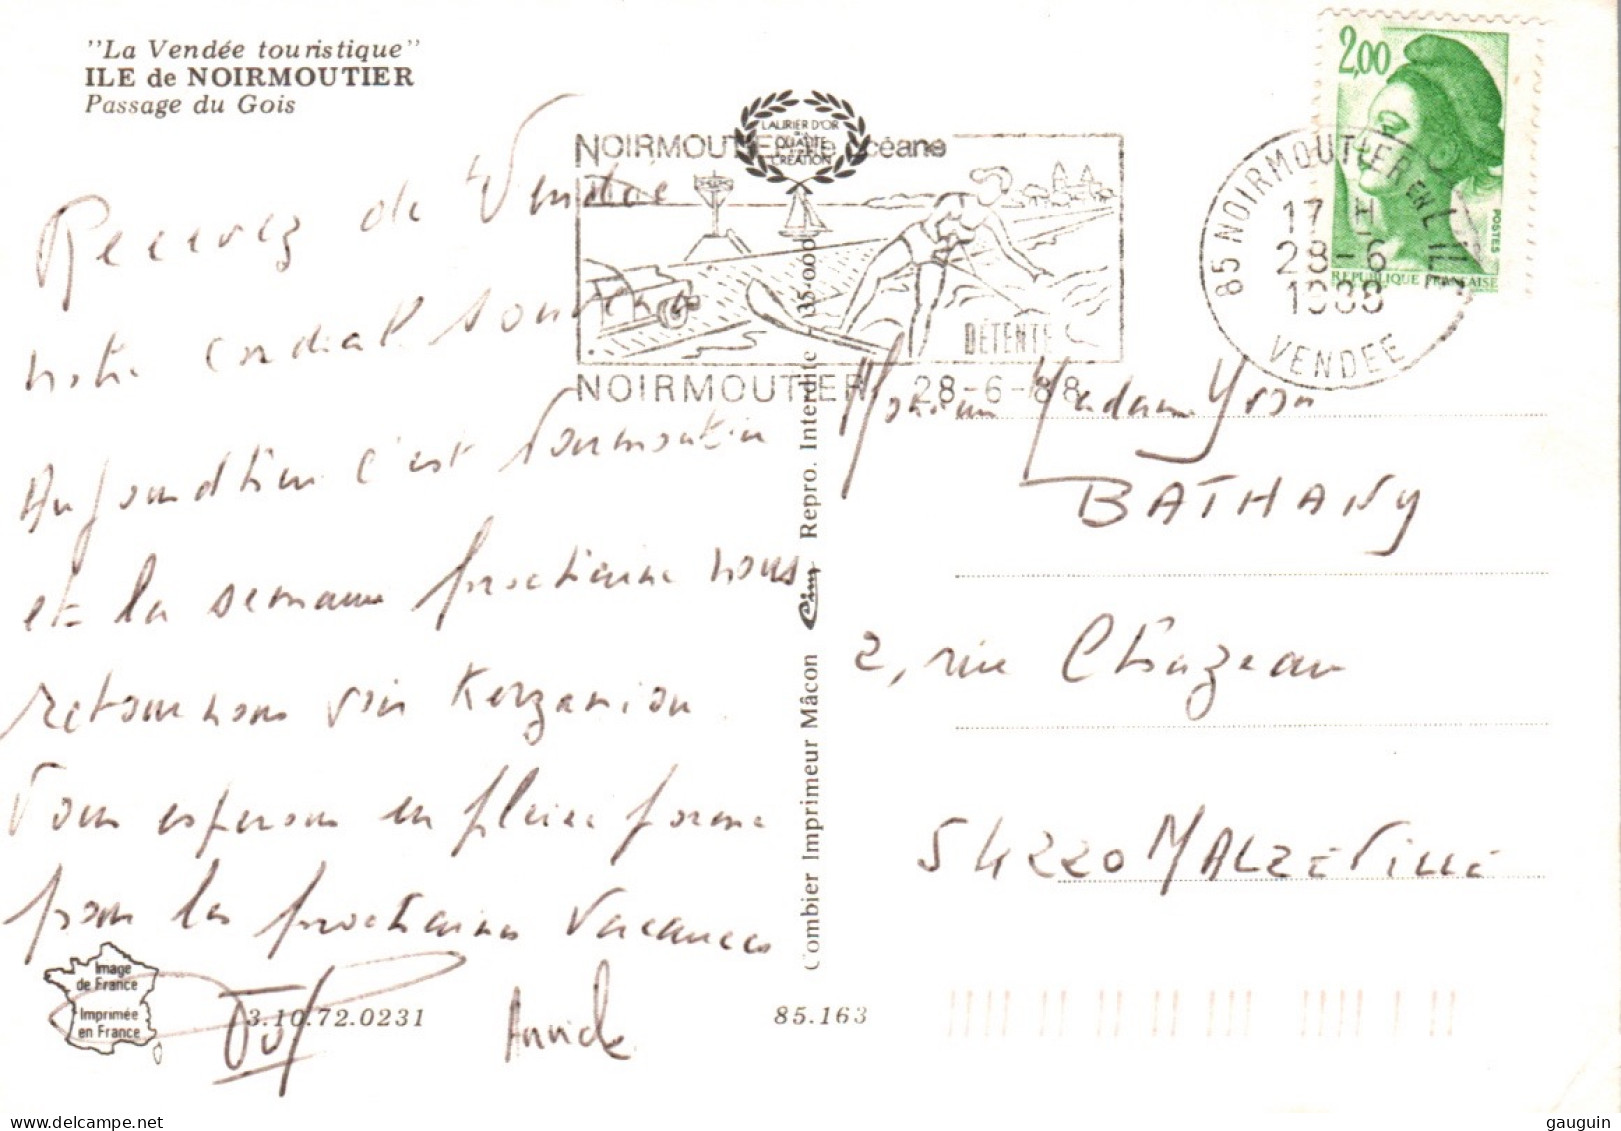 "La Vendée touristique"
ILE de NOIRMOUTIER
Passage du Gois
Recevez de Vendée
notre cordial souvenir
Aujourd'hui c'est Noirmoutier
et la semaine prochaine nous
retournons voir Kerzanion.
Vous esperons en pleine forme
pour les prochaines vacances
Annick
Image
de France
Imprimée
en France
3.10.72.0231
85.163
NOIRMOUTIER Ile Océane
LAURIER D'OR
DE LA
QUALITE
CREATION
DÉTENTE
NOIRMOUTIER 28-6-88
Combier Imprimeur Mâcon Cim Repro. Interdite 35-000
2,00
POSTES
REPUBLIQUE FRANÇAISE
85 NOIRMOUTIER EN L'ILE
17 H
28-6
1988
VENDEE
Monsieur Madame Yvon
BATHANY
2, rue Chazeau
54220 MALZEVILLE
delcampe.net
gauguin